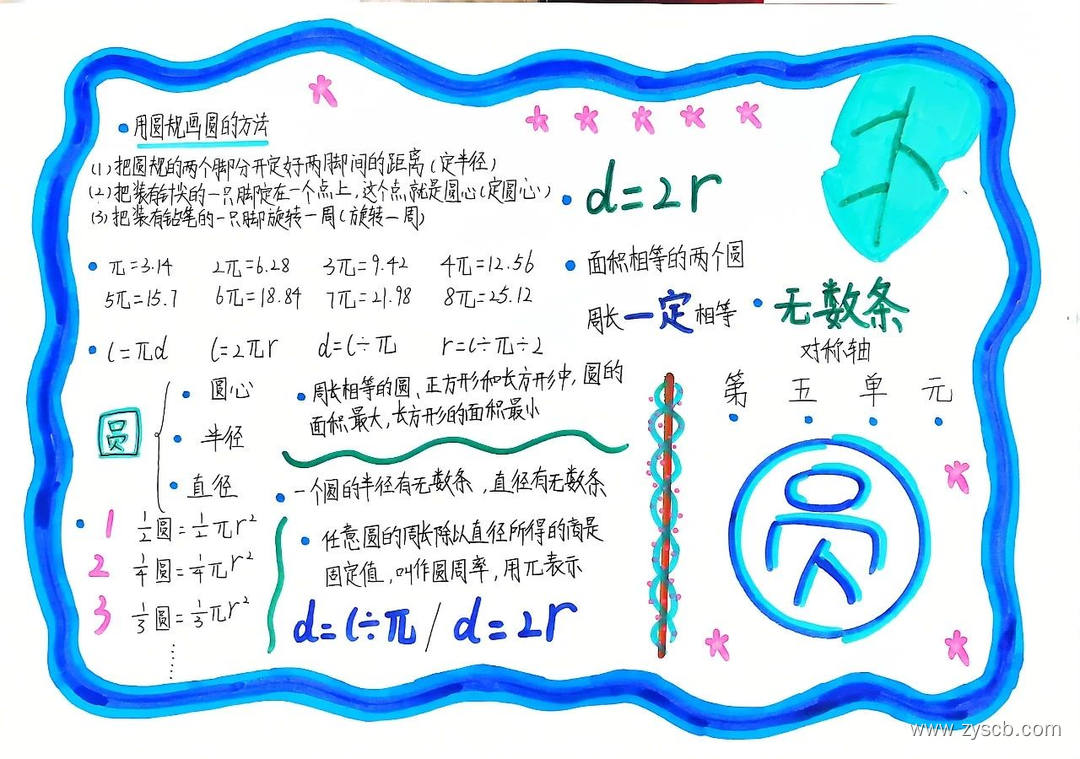 用圆规画圆的方法
(1)把圆规的两个脚分开定好两脚间的距离(定半径)
(2)把装有针尖的一只脚定在一个点上,这个点就是圆心(定圆心)
(3)把装有铅笔的一只脚旋转一周(旋转一周)
π=3.14 2π=6.28 3π=9.42 4π=12.56
5π=15.7 6π=18.84 7π=21.98 8π=25.12
C=πd C=2πr d=C÷π r=C÷π÷2
圆
圆心
半径
直径
1 1/2圆=1/2πr²
2 1/4圆=1/4πr²
3 1/3圆=1/3πr²
……
周长相等的圆、正方形和长方形中,圆的
面积最大,长方形的面积最小
一个圆的半径有无数条,直径有无数条
任意圆的周长除以直径所得的商是
固定值,叫作圆周率,用π表示
d=C÷π/d=2r
d=2r
面积相等的两个圆
周长一定相等
无数条
对称轴
第五单元
圆
www.zyscb.com